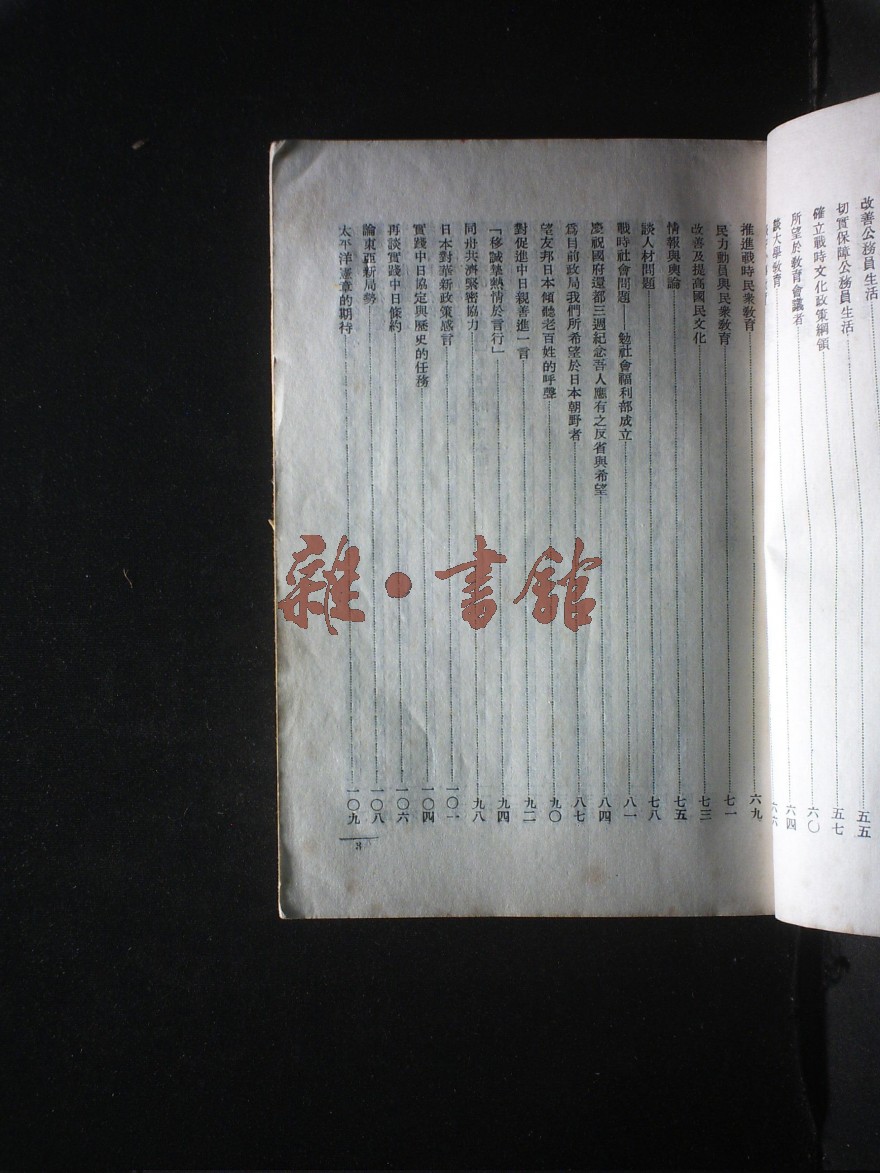 改善公務員生活……五五
切實保障公務員生活……五七
確立戰時文化政策綱領……六〇
所望於教育會議者……六四
談大學教育……六六
推進戰時民衆教育……六九
民力動員與民衆教育……七一
改善及提高國民文化……七三
情報與輿論……七五
談人材問題……七八
戰時社會問題 勉社會福利部成立……八一
慶祝國府還都三週紀念吾人應有之反省與希望……八四
爲目前政局我們所希望於日本朝野者……八七
望友邦日本傾聽老百姓的呼聲……九〇
對促進中日親善進一言……九二
「移誠摯熱情於言行」……九四
同舟共濟緊密協力……九八
日本對華新政策感言……一〇一
實踐中日協定與歷史的任務……一〇四
再談實踐中日條約……一〇六
論東亞新局勢……一〇八
太平洋憲章的期待……一〇九
3
雜·書館